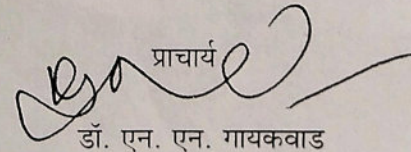 प्राचार्य
डॉ. एन. एन. गायकवाड